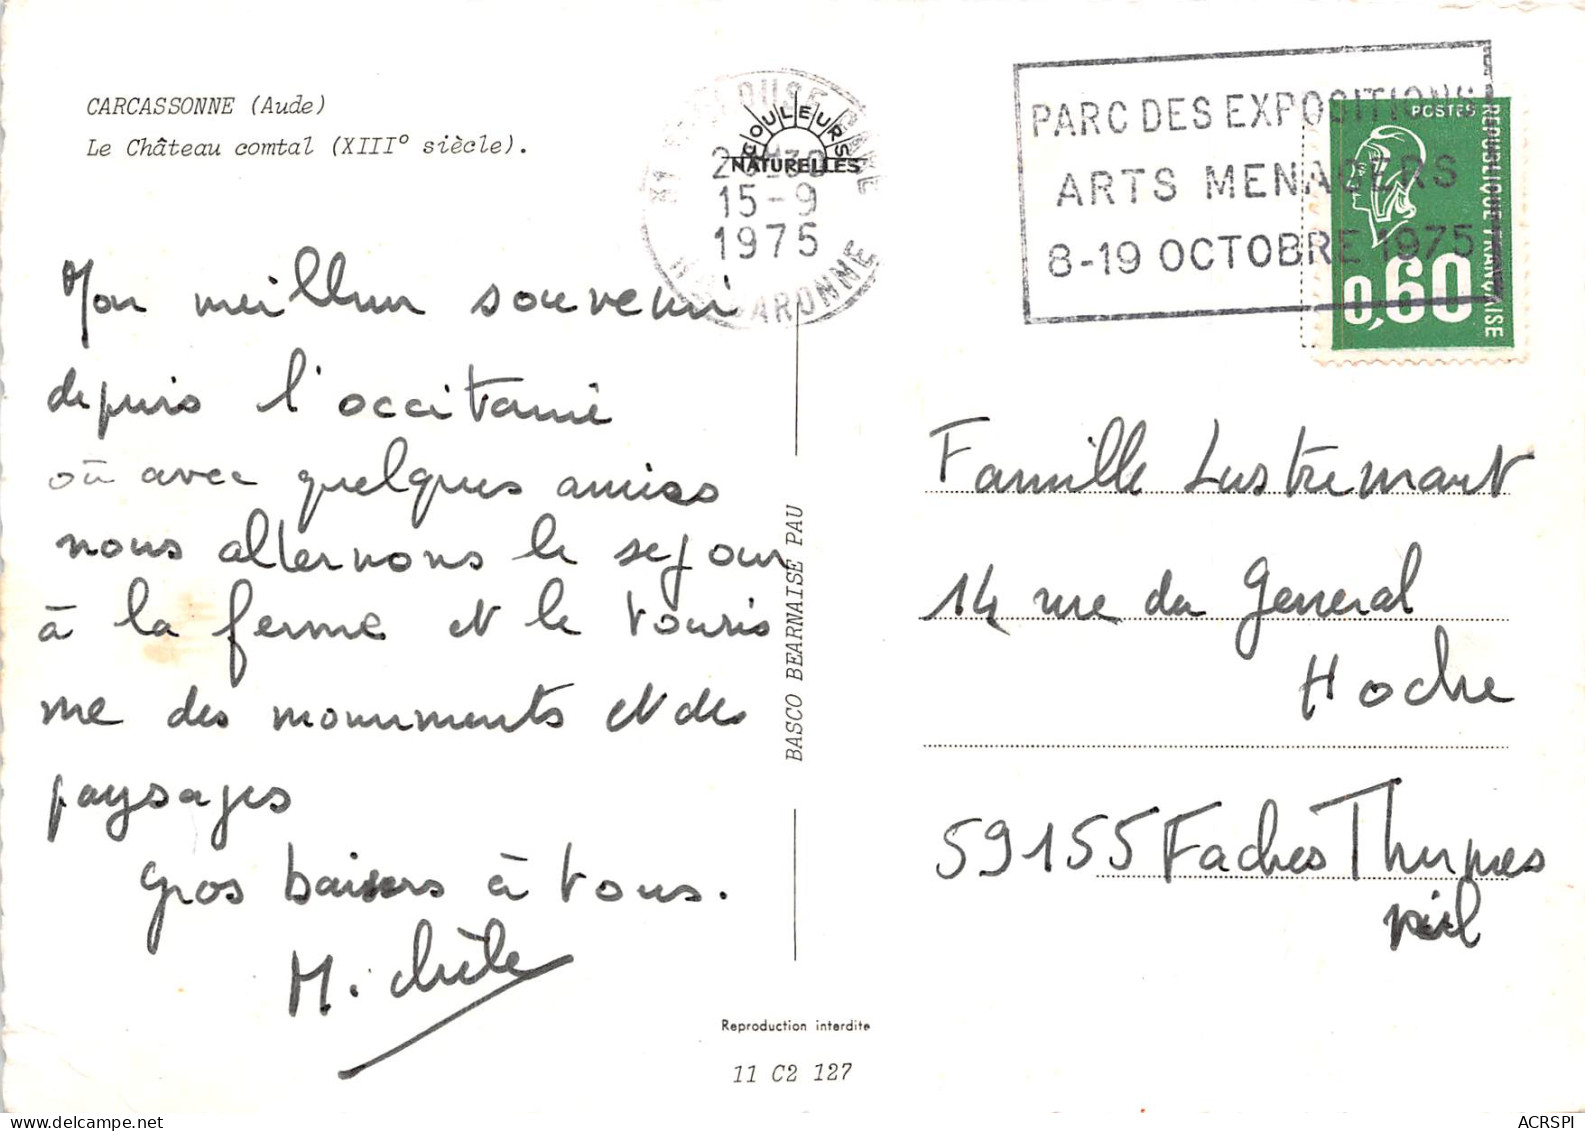 CARCASSONNE (Aude)
Le Château comtal (XIII° siècle).
Mon meilleur souvenir
depuis l'occitanie
où avec quelques amies
nous alternons le sejour
à la ferme et le touris
me des monuments et des
paysages
gros baisers à tous.
Michèle
COULEURS
NATURELLES
TOULOUSE GARE
15-9
1975
HTE GARONNE
PARC DES EXPOSITIONS
ARTS MENAGERS
8-19 OCTOBRE 1975
POSTES
REPUBLIQUE FRANÇAISE
0,60
BASCO BEARNAISE PAU
Famille Lustremant
14 rue du General
Hoche
59155 Faches Thumesnil
Reproduction interdite
11 C2 127
ACRSPI